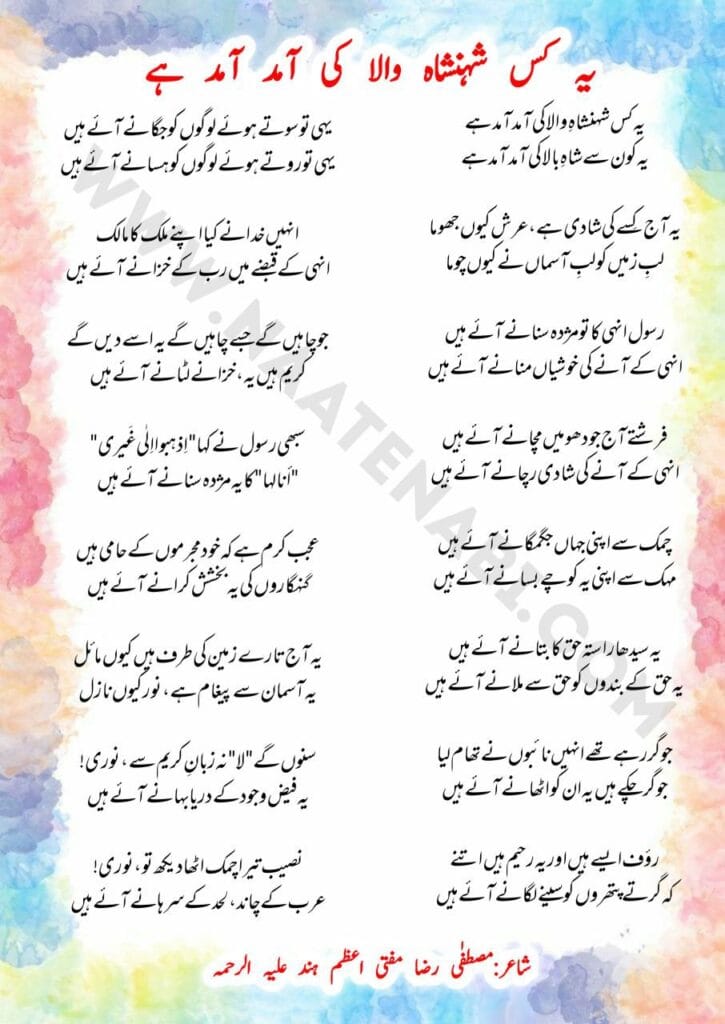 یہ کس شہنشاہ والا کی آمد آمد ہے
یہ کس شہنشاہِ والا کی آمد آمد ہے
یہ کون سے شاہِ بالا کی آمد آمد ہے
یہ آج کسے کی شادی ہے، عرش کیوں جھوما
لبِ زمیں کو لبِ آسماں نے کیوں چوما
رسول انہی کا تو مژدہ سنانے آئے ہیں
انہی کے آنے کی خوشیاں منانے آئے ہیں
فرشتے آج جو دھومیں مچانے آئے ہیں
انہی کے آنے کی شادی رچانے آئے ہیں
چمک سے اپنی جہاں جگمگانے آئے ہیں
مہک سے اپنی یہ کوچے بسانے آئے ہیں
یہ سیدھا راستہ حق کا بتانے آئے ہیں
یہ حق کے بندوں کو حق سے ملانے آئے ہیں
جو گر رہے تھے انہیں نائبوں نے تھام لیا
جو گر چکے ہیں یہ ان کو اٹھانے آئے ہیں
رؤف ایسے ہیں اور یہ رحیم ہیں اتنے
کہ گرتے پتھروں کو سینے لگانے آئے ہیں
یہی تو سوتے ہوئے لوگوں کو جگانے آئے ہیں
یہی تو روتے ہوئے لوگوں کو ہسانے آئے ہیں
انہیں خدا نے کیا اپنے ملک کا مالک
انہی کے قبضے میں رب کے خزانے آئے ہیں
جو چاہیں گے جسے چاہیں گے یہ اسے دیں گے
کریم ہیں یہ، خزانے لٹانے آئے ہیں
سبھی رسول نے کہا "اِذہبوا اِلٰی غَیری"
"اَنا لہا" کا یہ مژدہ سنانے آئے ہیں
عجب کرم ہے کہ خود مجرموں کے حامی ہیں
گنہگاروں کی یہ بخشش کرانے آئے ہیں
یہ آج تارے زمین کی طرف ہیں کیوں مائل
یہ آسمان سے پیغام ہے، نور کیوں نازل
سنوں گے "لا" نہ زبانِ کریم سے، نوری!
یہ فیض وجود کے دریا بہانے آئے ہیں
نصیب تیرا چمک اٹھا دیکھ تو، نوری!
عرب کے چاند، لحد کے سرہانے آئے ہیں
شاعر: مصطفٰی رضا مفتی اعظم ہند علیہ الرحمہ
WWW.NAATENABI.COM